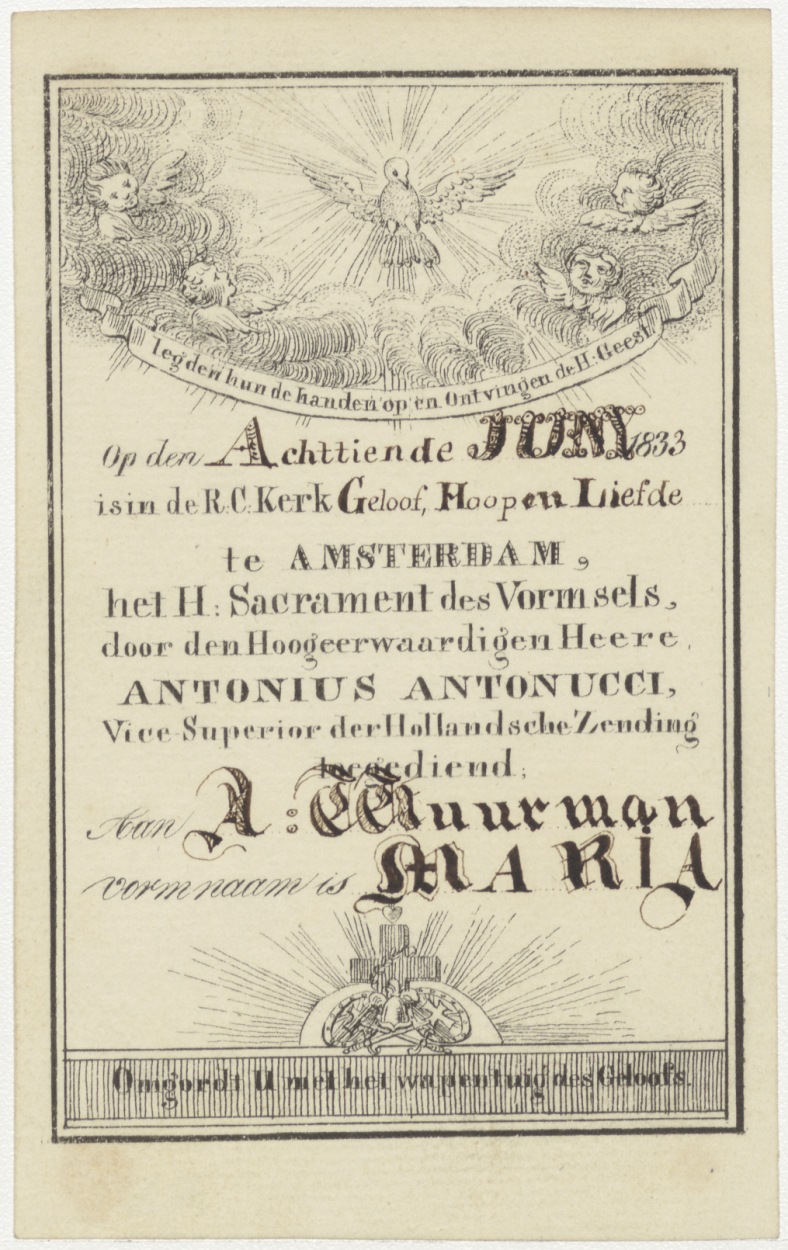 legden hun de handen op en Ontvingen de H: Geest
Op den Achttiende JUNY 1833
is in de R: C: Kerk Geloof, Hoop en Liefde
te AMSTERDAM,
het H: Sacrament des Vormsels,
door den Hoogeerwaardigen Heere,
ANTONIUS ANTONUCCI,
Vice-Superior der Hollandsche Zending
toegediend;
Aan A: Muurman
vormnaam is MARIA
Omgordt U met het wapentuig des Geloofs.